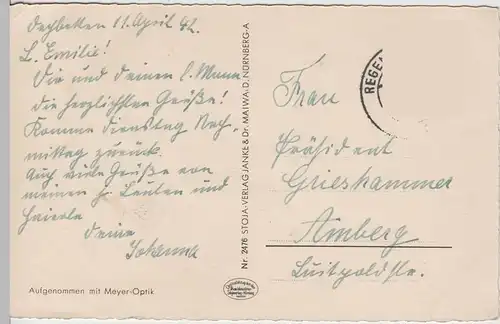 11. April 42.
L. Emilie!
Dir und deinen l. Mann
die herzlichsten Grüße!
Komme Dienstag Nach-
mittag zurück.
Auch viele Grüße von
meinen Leuten und
deine
Johanna
Aufgenommen mit Meyer-Optik
Nr. 2476 STOJA-VERLAG JANKE & Dr. MAIWALD, NÜRNBERG-A
REGE
Frau
Präsident
Grieshammer
Amberg
Luitpoldstr.